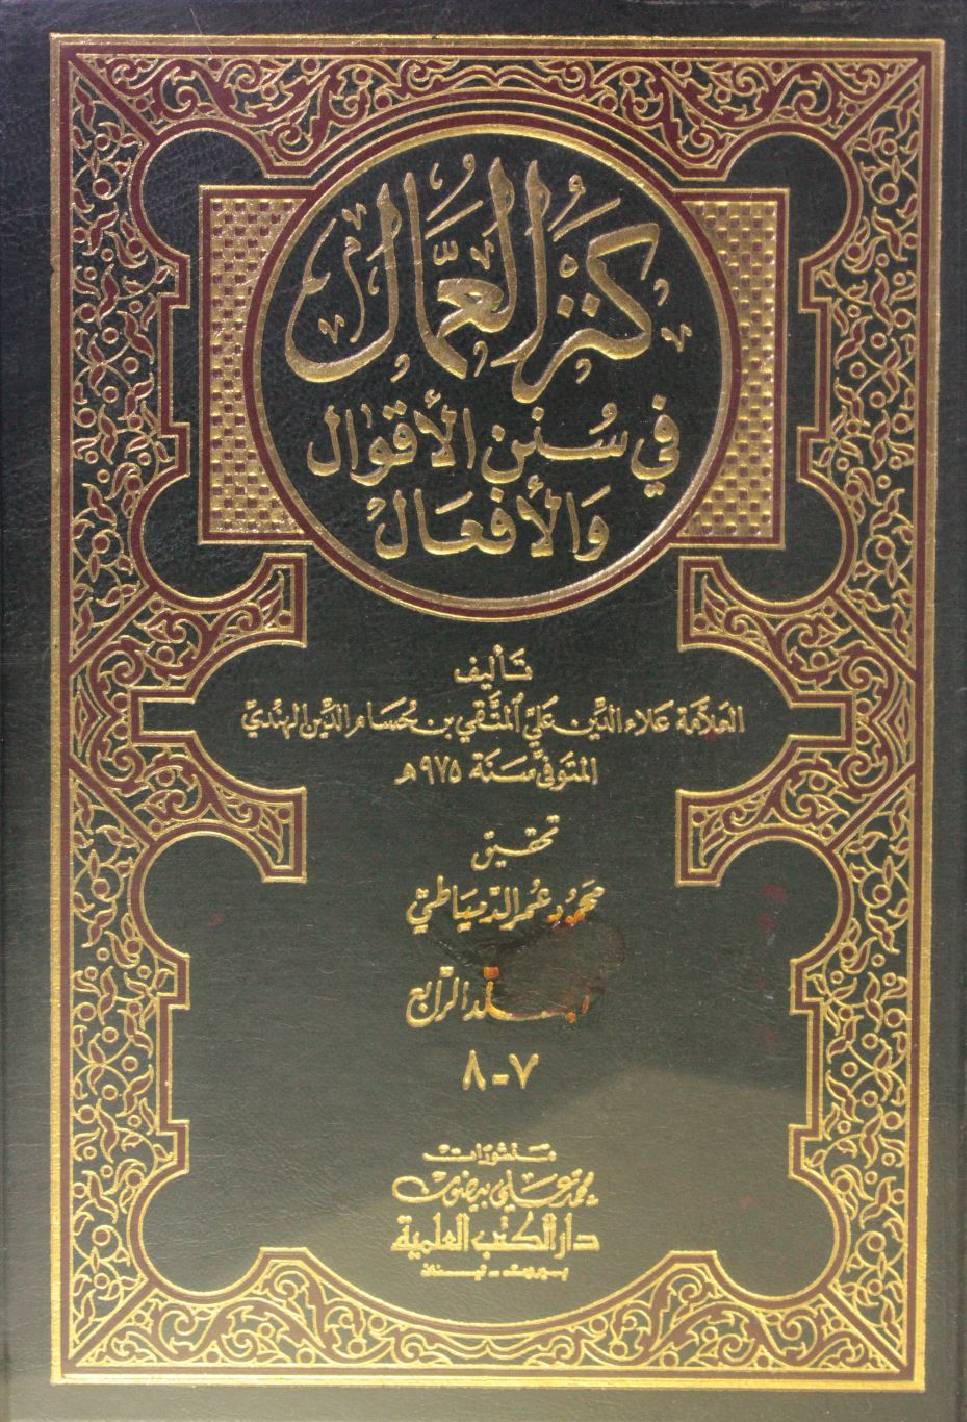 كنز العمال
في سنن الأقوال
والأفعال
تأليف
العلامة علاء الدين علي المتقي بن حسام الدين الهندي
المتوفى سنة ٩٧٥ هـ
تحقيق
محمود عمر الدمياطي
المجلد الرابع
٧-٨
منشورات
محمد علي بيضون
دار الكتب العلمية
بيروت - لبنان